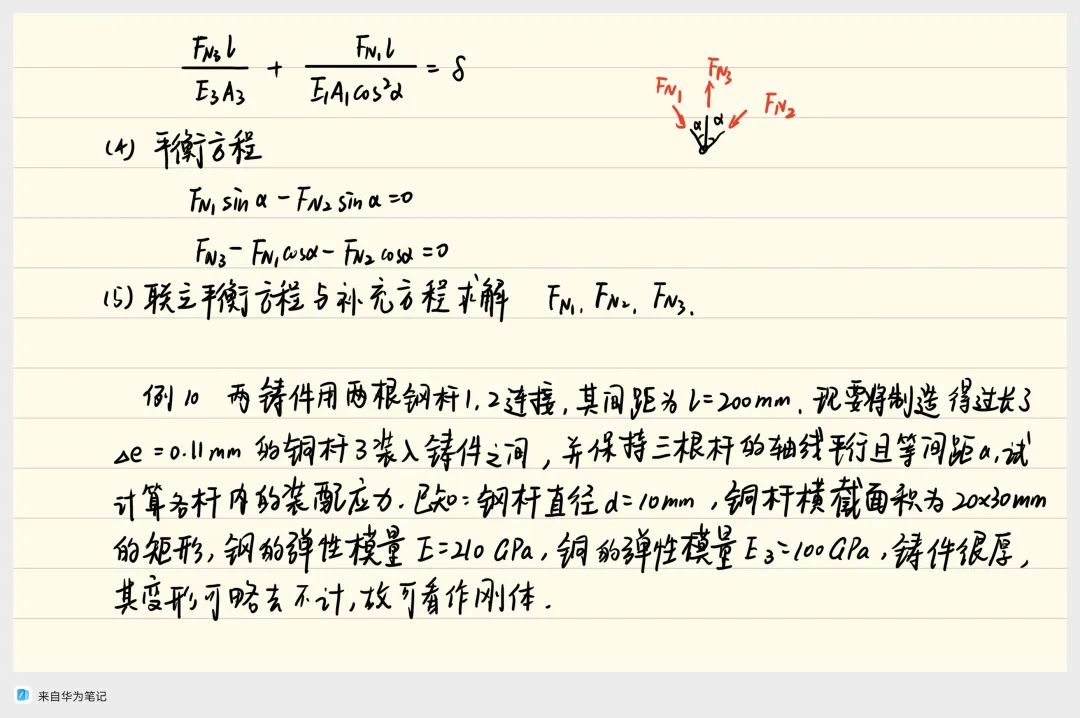 F_N3 l / E₃A₃ + F_N1 l / E₁A₁cos²α = δ
F_N1 F_N3 F_N2
α α
(4) 平衡方程
F_N1 sinα - F_N2 sinα = 0
F_N3 - F_N1 cosα - F_N2 cosα = 0
(5) 联立平衡方程与补充方程求解 F_N1, F_N2, F_N3.
例10 两铸件用两根钢杆1,2连接,其间距为l=200mm.现要将制造得过长了
Δe=0.11mm的铜杆3装入铸件之间,并保持三根杆的轴线平行且等间距a,试
计算各杆内的装配应力.已知:钢杆直径d=10mm,铜杆横截面积为20x30mm
的矩形,钢的弹性模量E=210GPa,铜的弹性模量E₃=100GPa,铸件很厚,
其变形可略去不计,故可看作刚体.
来自华为笔记